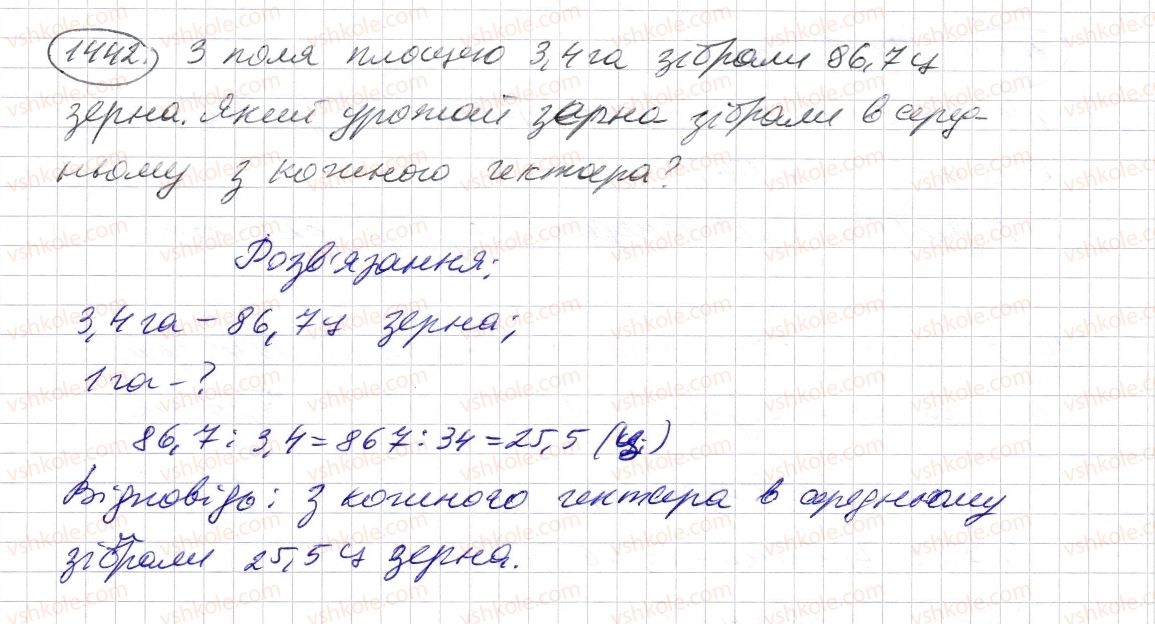 1442. З поля площею 3,4 га зібрали 86,7 ц
зерна. Який урожай зерна зібрали в серед-
ньому з кожного гектара?
Розв'язання:
3,4 га – 86,7 ц зерна;
1 га – ?
86,7 : 3,4 = 867 : 34 = 25,5 (ц)
Відповідь: з кожного гектара в середньому
зібрали 25,5 ц зерна.